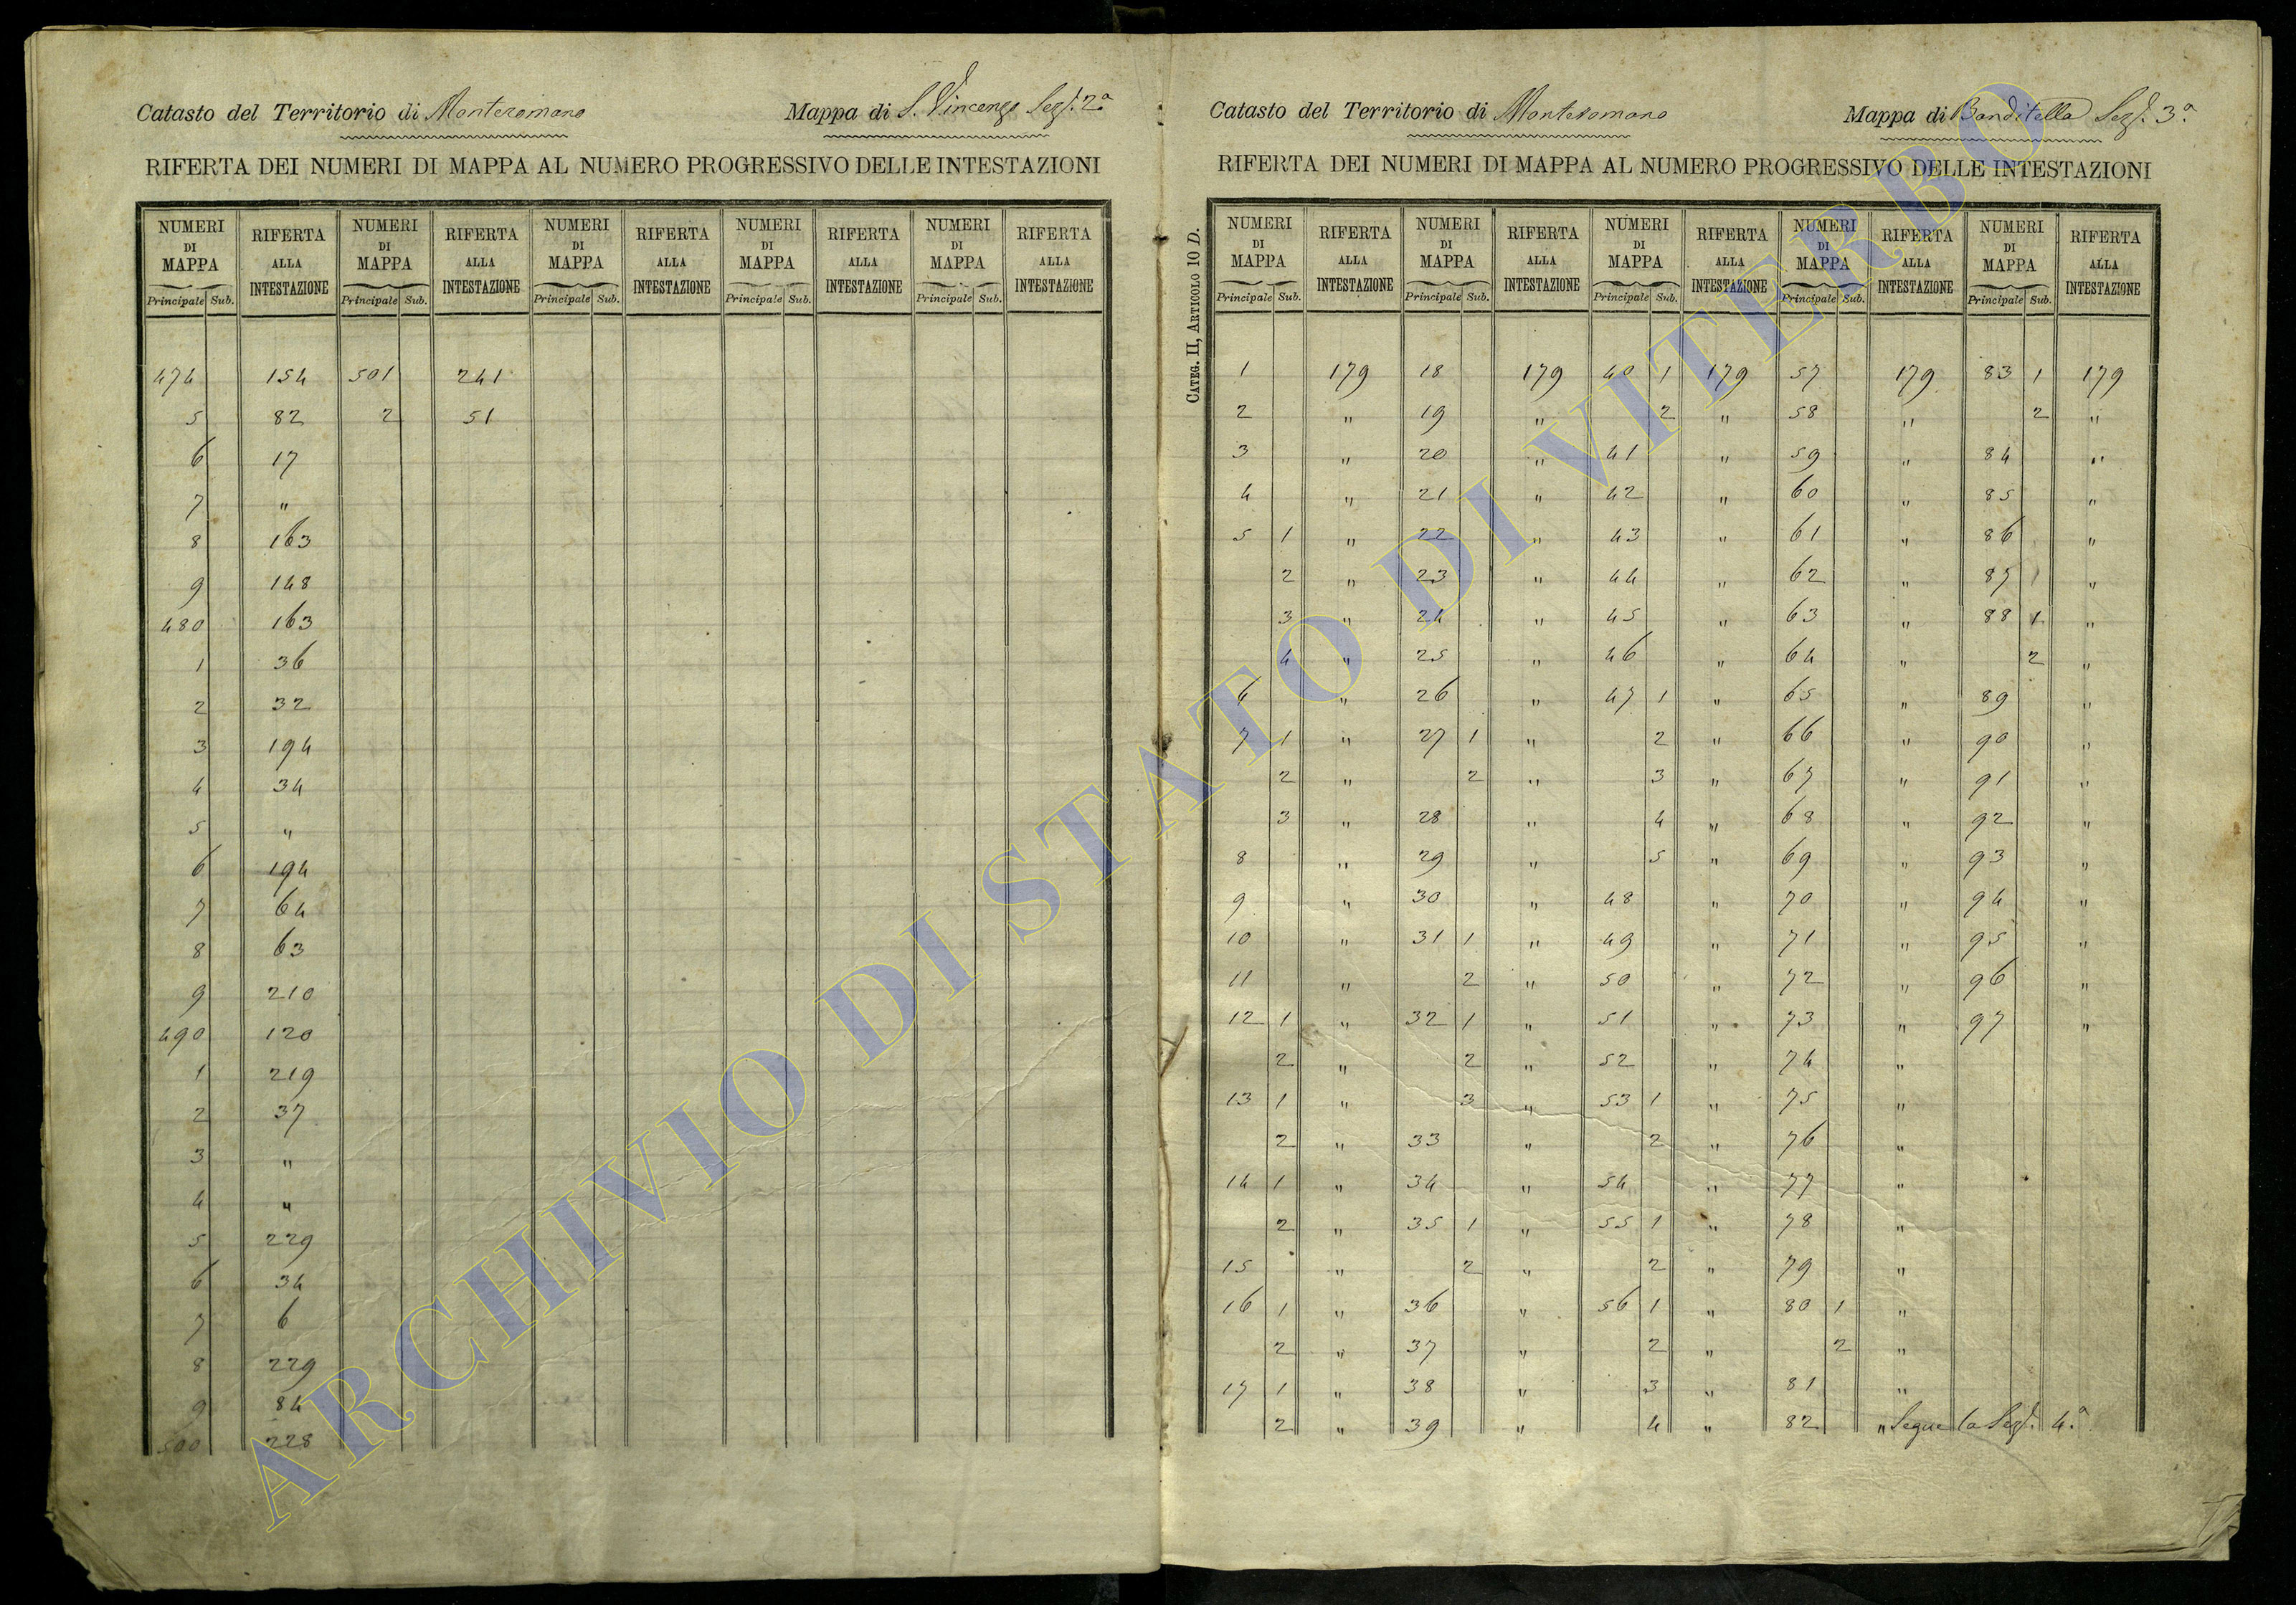 Catasto del Territorio di Monteromano Mappa di S. Vincenzo Sez. 2ª
RIFERTA DEI NUMERI DI MAPPA AL NUMERO PROGRESSIVO DELLE INTESTAZIONI
NUMERI DI MAPPA RIFERTA ALLA INTESTAZIONE NUMERI DI MAPPA RIFERTA ALLA INTESTAZIONE NUMERI DI MAPPA RIFERTA ALLA INTESTAZIONE NUMERI DI MAPPA RIFERTA ALLA INTESTAZIONE NUMERI DI MAPPA RIFERTA ALLA INTESTAZIONE
Principale Sub. Principale Sub. Principale Sub. Principale Sub. Principale Sub.
474 154 501 241
5 82 2 51
6 17
7 "
8 163
9 148
480 163
1 36
2 32
3 194
4 34
5 "
6 194
7 64
8 63
9 210
490 120
1 219
2 37
3 "
4 "
5 229
6 34
7 6
8 229
9 84
500 228
Catasto del Territorio di Monteromano Mappa di Banditella Sez. 3ª
RIFERTA DEI NUMERI DI MAPPA AL NUMERO PROGRESSIVO DELLE INTESTAZIONI
CATEG. II, ARTICOLO 10 D.
NUMERI DI MAPPA RIFERTA ALLA INTESTAZIONE NUMERI DI MAPPA RIFERTA ALLA INTESTAZIONE NUMERI DI MAPPA RIFERTA ALLA INTESTAZIONE NUMERI DI MAPPA RIFERTA ALLA INTESTAZIONE NUMERI DI MAPPA RIFERTA ALLA INTESTAZIONE
Principale Sub. Principale Sub. Principale Sub. Principale Sub. Principale Sub.
1 179 18 179 40 1 179 57 179 83 1 179
2 " 19 " 2 " 58 " 2 "
3 " 20 " 41 " 59 " 84 "
4 " 21 " 42 " 60 " 85 "
5 1 " 22 " 43 " 61 " 86 "
2 " 23 " 44 " 62 " 87 1 "
3 " 24 " 45 " 63 " 88 1 "
4 " 25 " 46 " 64 " 2 "
6 " 26 " 47 1 " 65 " 89 "
7 1 " 27 1 " 2 " 66 " 90 "
2 " 2 " 3 " 67 " 91 "
3 " 28 " 4 " 68 " 92 "
8 " 29 " 5 " 69 " 93 "
9 " 30 " 48 " 70 " 94 "
10 " 31 1 " 49 " 71 " 95 "
11 " 2 " 50 " 72 " 96 "
12 1 " 32 1 " 51 " 73 " 97 "
2 " 2 " 52 " 74 "
13 1 " 3 " 53 1 " 75 "
2 " 33 " 2 " 76 "
14 1 " 34 " 54 " 77 "
2 " 35 1 " 55 1 " 78 "
15 " 2 " 2 " 79 "
16 1 " 36 " 56 1 " 80 1 "
2 " 37 " 2 " 2 "
17 1 " 38 " 3 " 81 "
2 " 39 " 4 " 82 " Segue la Sez. 4ª
ARCHIVIO DI STATO DI VITERBO